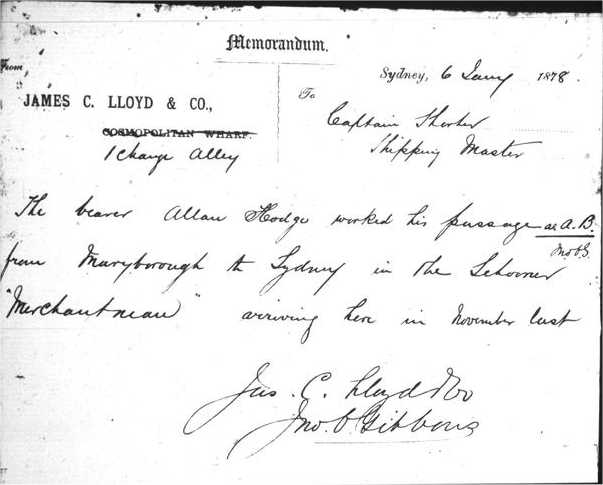 Memorandum.
From,
Sydney, 6 Jany 1878.
JAMES C. LLOYD & CO.,
COSMOPOLITAN WHARF.
1 Change Alley
To
Captain
Shipping Master
The bearer Allan Hodge worked his passage as A.B.
JnoO.G.
from Maryborough to Sydney in the Schooner
"Merchantman" arriving here in November last
Jas. C. Lloyd & Co
Jno. O. Gibbons